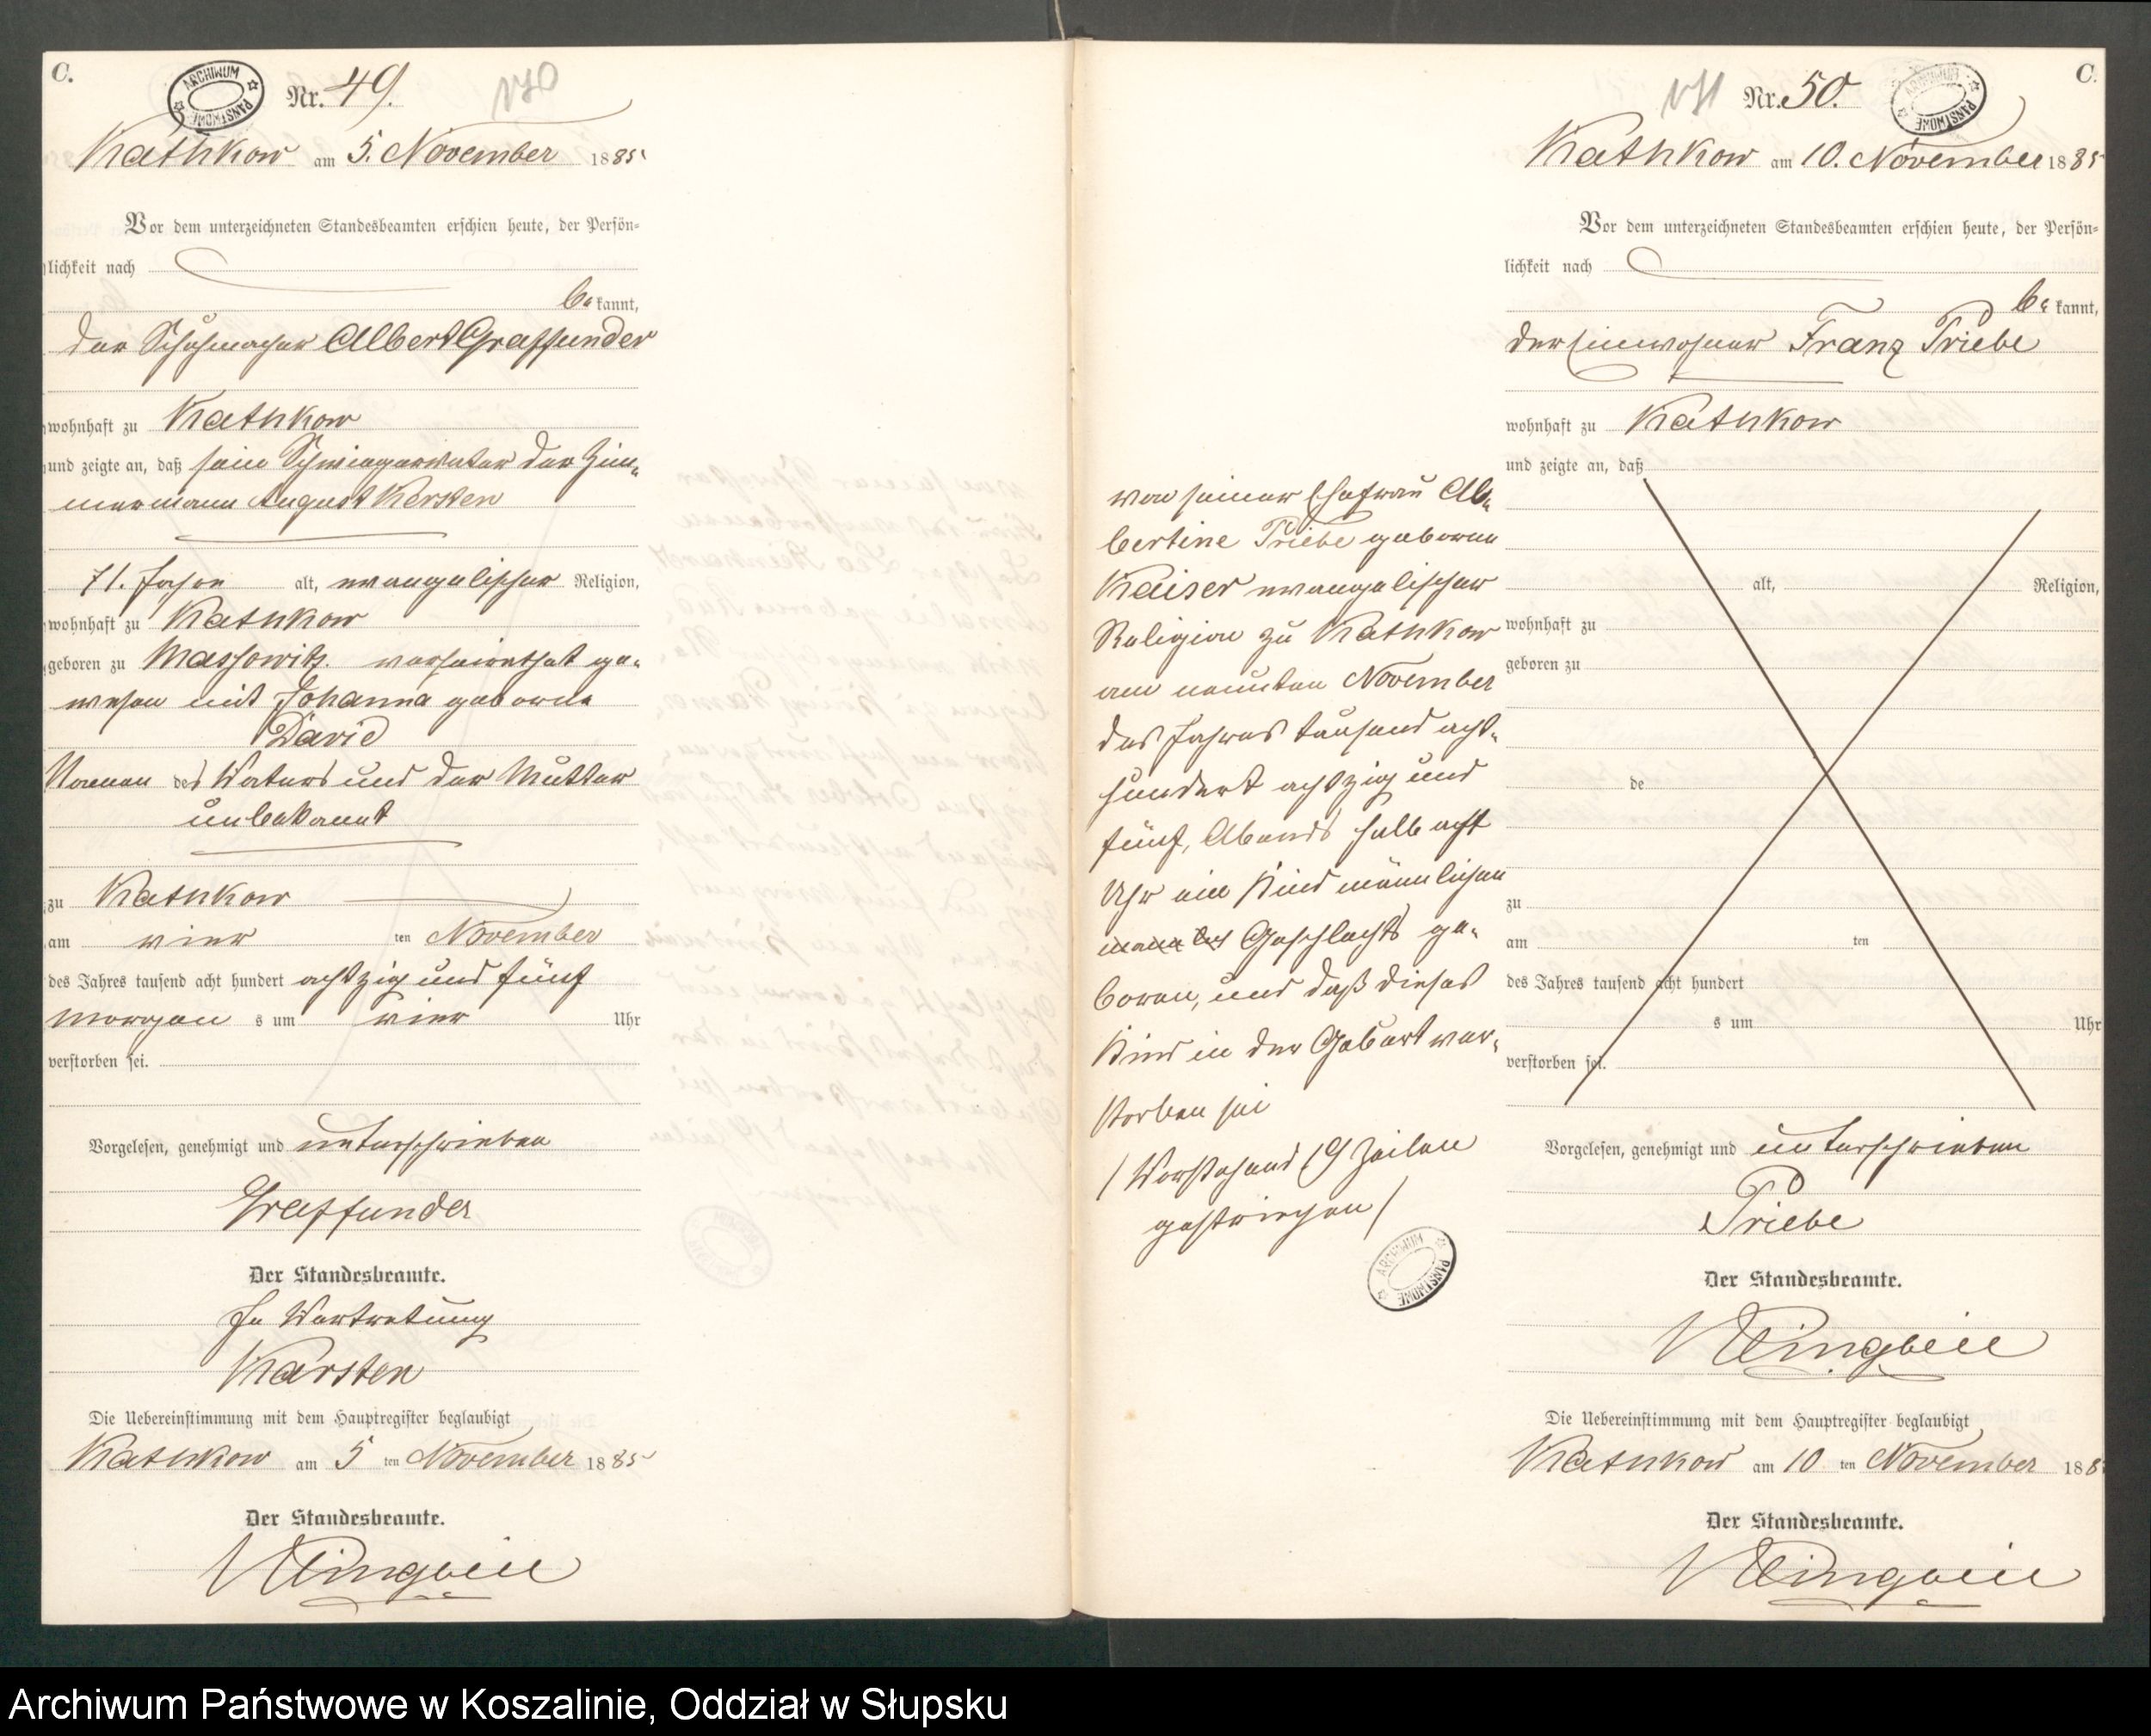 C.
ARCHIWUM PAŃSTWOWE
Nr. 49.
170
Kathkow am 5. November 1885
Vor dem unterzeichneten Standesbeamten erschien heute, der Persön-
lichkeit nach
be kannt,
der Schuhmacher Albert Graffunder
wohnhaft zu Kathkow
und zeigte an, daß sein Schwiegervater der Zim-
mermann August Kersten
71. Jahre alt, evangelischer Religion,
wohnhaft zu Kathkow
geboren zu Massowitz. verheirathet ge-
wesen mit Johanna geborene
David
Namen des Vaters und der Mutter
unbekannt
zu Kathkow
am vier ten November
des Jahres tausend acht hundert achtzig und fünf
Morgen s um vier Uhr
verstorben sei.
Vorgelesen, genehmigt und unterschrieben
Graffunder
Der Standesbeamte.
In Vertretung
Karsten
Die Uebereinstimmung mit dem Hauptregister beglaubigt
Kathkow am 5 ten November 1885
Der Standesbeamte.
C.
171
Nr. 50.
ARCHIWUM PAŃSTWOWE
Kathkow am 10. November 1885
Vor dem unterzeichneten Standesbeamten erschien heute, der Persön-
lichkeit nach
be kannt,
der Einwohner Franz Priebe
wohnhaft zu Kathkow
und zeigte an, daß
alt, Religion,
wohnhaft zu
geboren zu
de
zu
am ten
des Jahres tausend acht hundert
s um Uhr
verstorben sei.
von seiner Ehefrau Al-
bertine Priebe geborene
Kaiser evangelischer
Religion zu Kathkow
am neunten November
des Jahres tausend acht-
hundert achtzig und
fünf, Abends halb acht
Uhr ein Kind männlichen
Geschlechts ge-
boren, und daß dieses
Kind in der Geburt ver-
storben sei
/ Vorstehend 19 Zeilen
gestrichen /
ARCHIWUM PAŃSTWOWE
Vorgelesen, genehmigt und unterschrieben
Priebe
Der Standesbeamte.
Die Uebereinstimmung mit dem Hauptregister beglaubigt
Kathkow am 10 ten November 188
Der Standesbeamte.
Archiwum Państwowe w Koszalinie, Oddział w Słupsku